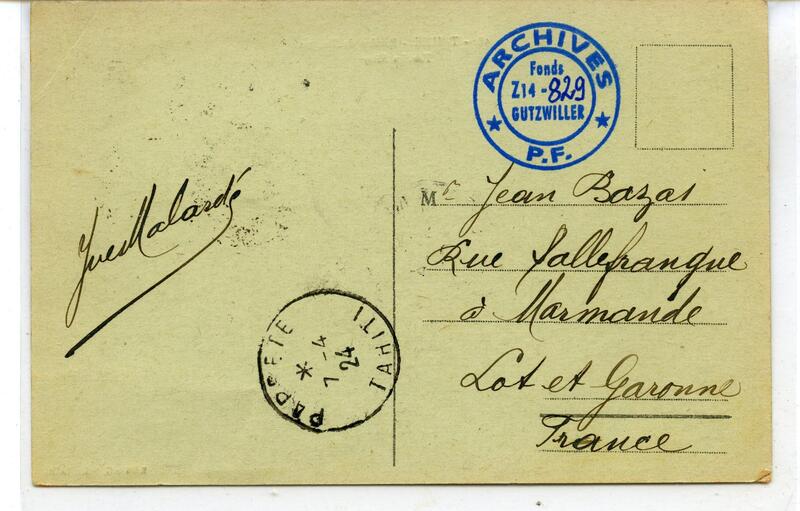 ARCHIVES
Fonds
Z14-829
GUTZWILLER
P.F.
Yves Malardé
Mr Jean Bazas
Rue Sallefranque
à Marmande
Lot et Garonne
France
PAPEETE
7-4
24
TAHITI